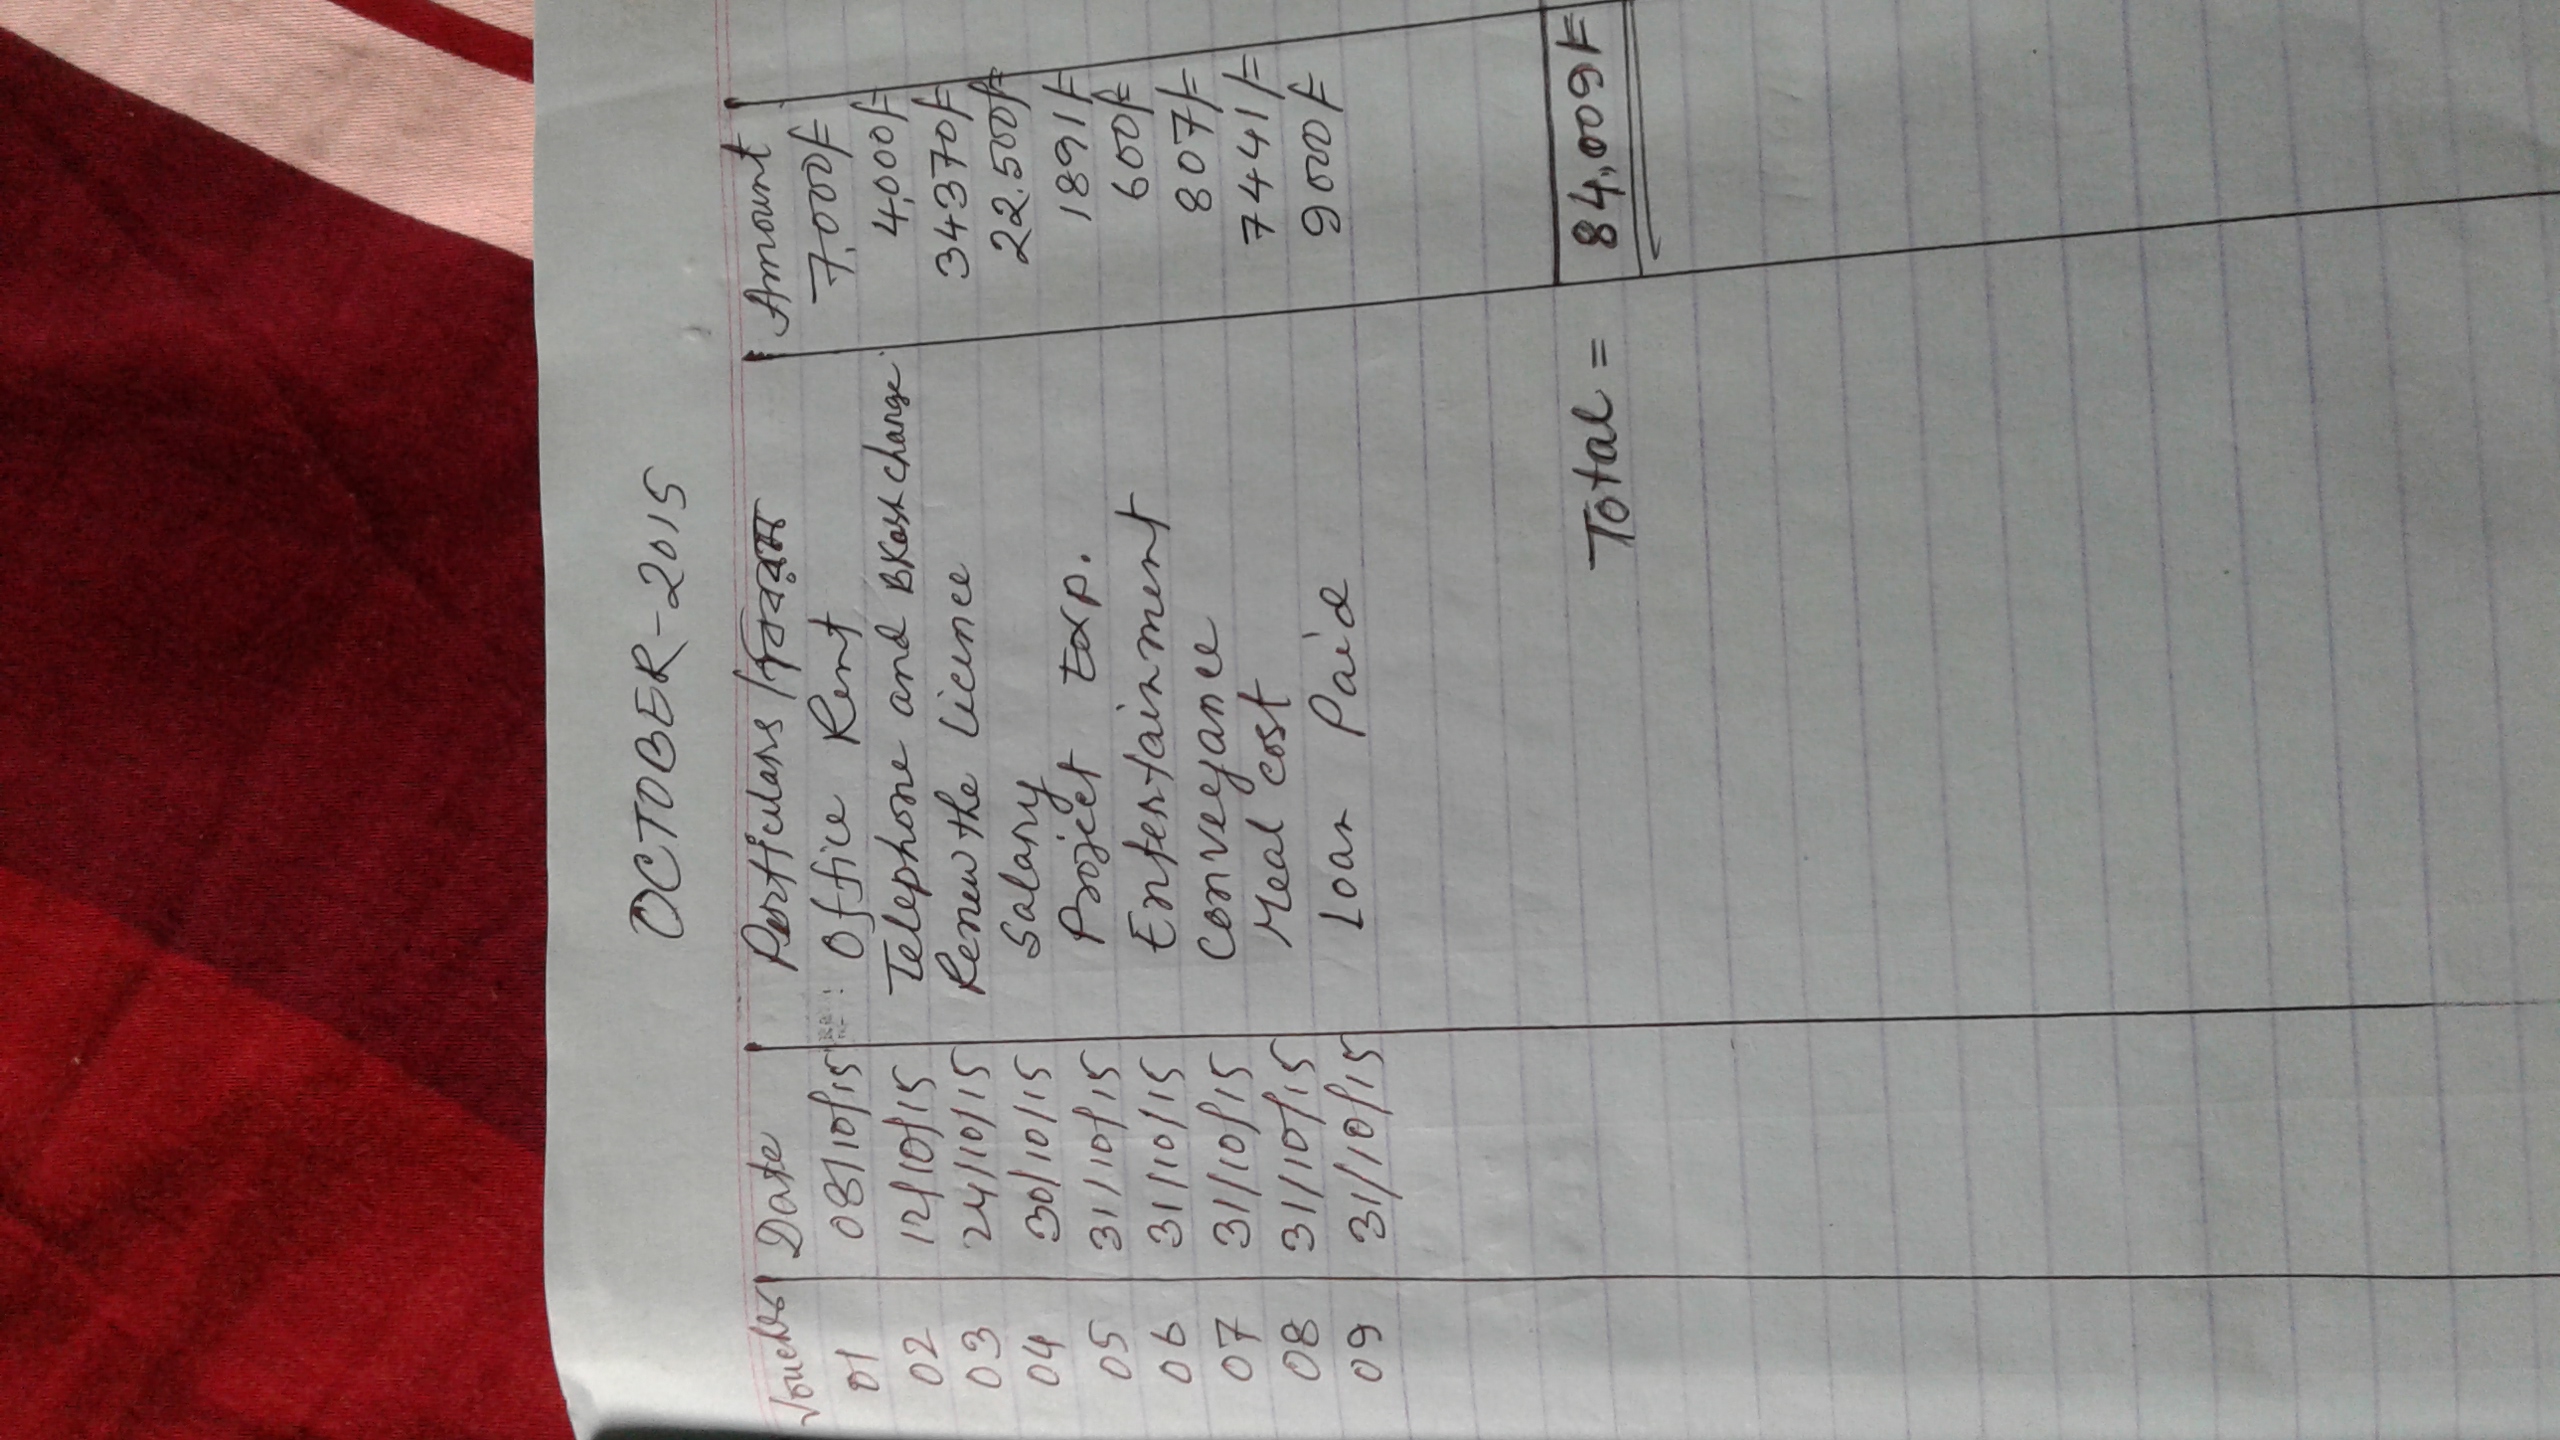 OCTOBER-2015
Voucher Date Particulars / বিবরন Amount
01 08/10/15 Office Rent 7,000/=
02 12/10/15 Telephone and BKash charge 4,000/=
03 24/10/15 Renew the licence 34370/=
04 30/10/15 Salary 22.500/=
05 31/10/15 Project Exp. 1891/=
06 31/10/15 Entertainment 600/=
07 31/10/15 Conveyance 807/=
08 31/10/15 Meal cost 7441/=
09 31/10/15 Loan Paid 9000/=
Total = 84,009/=